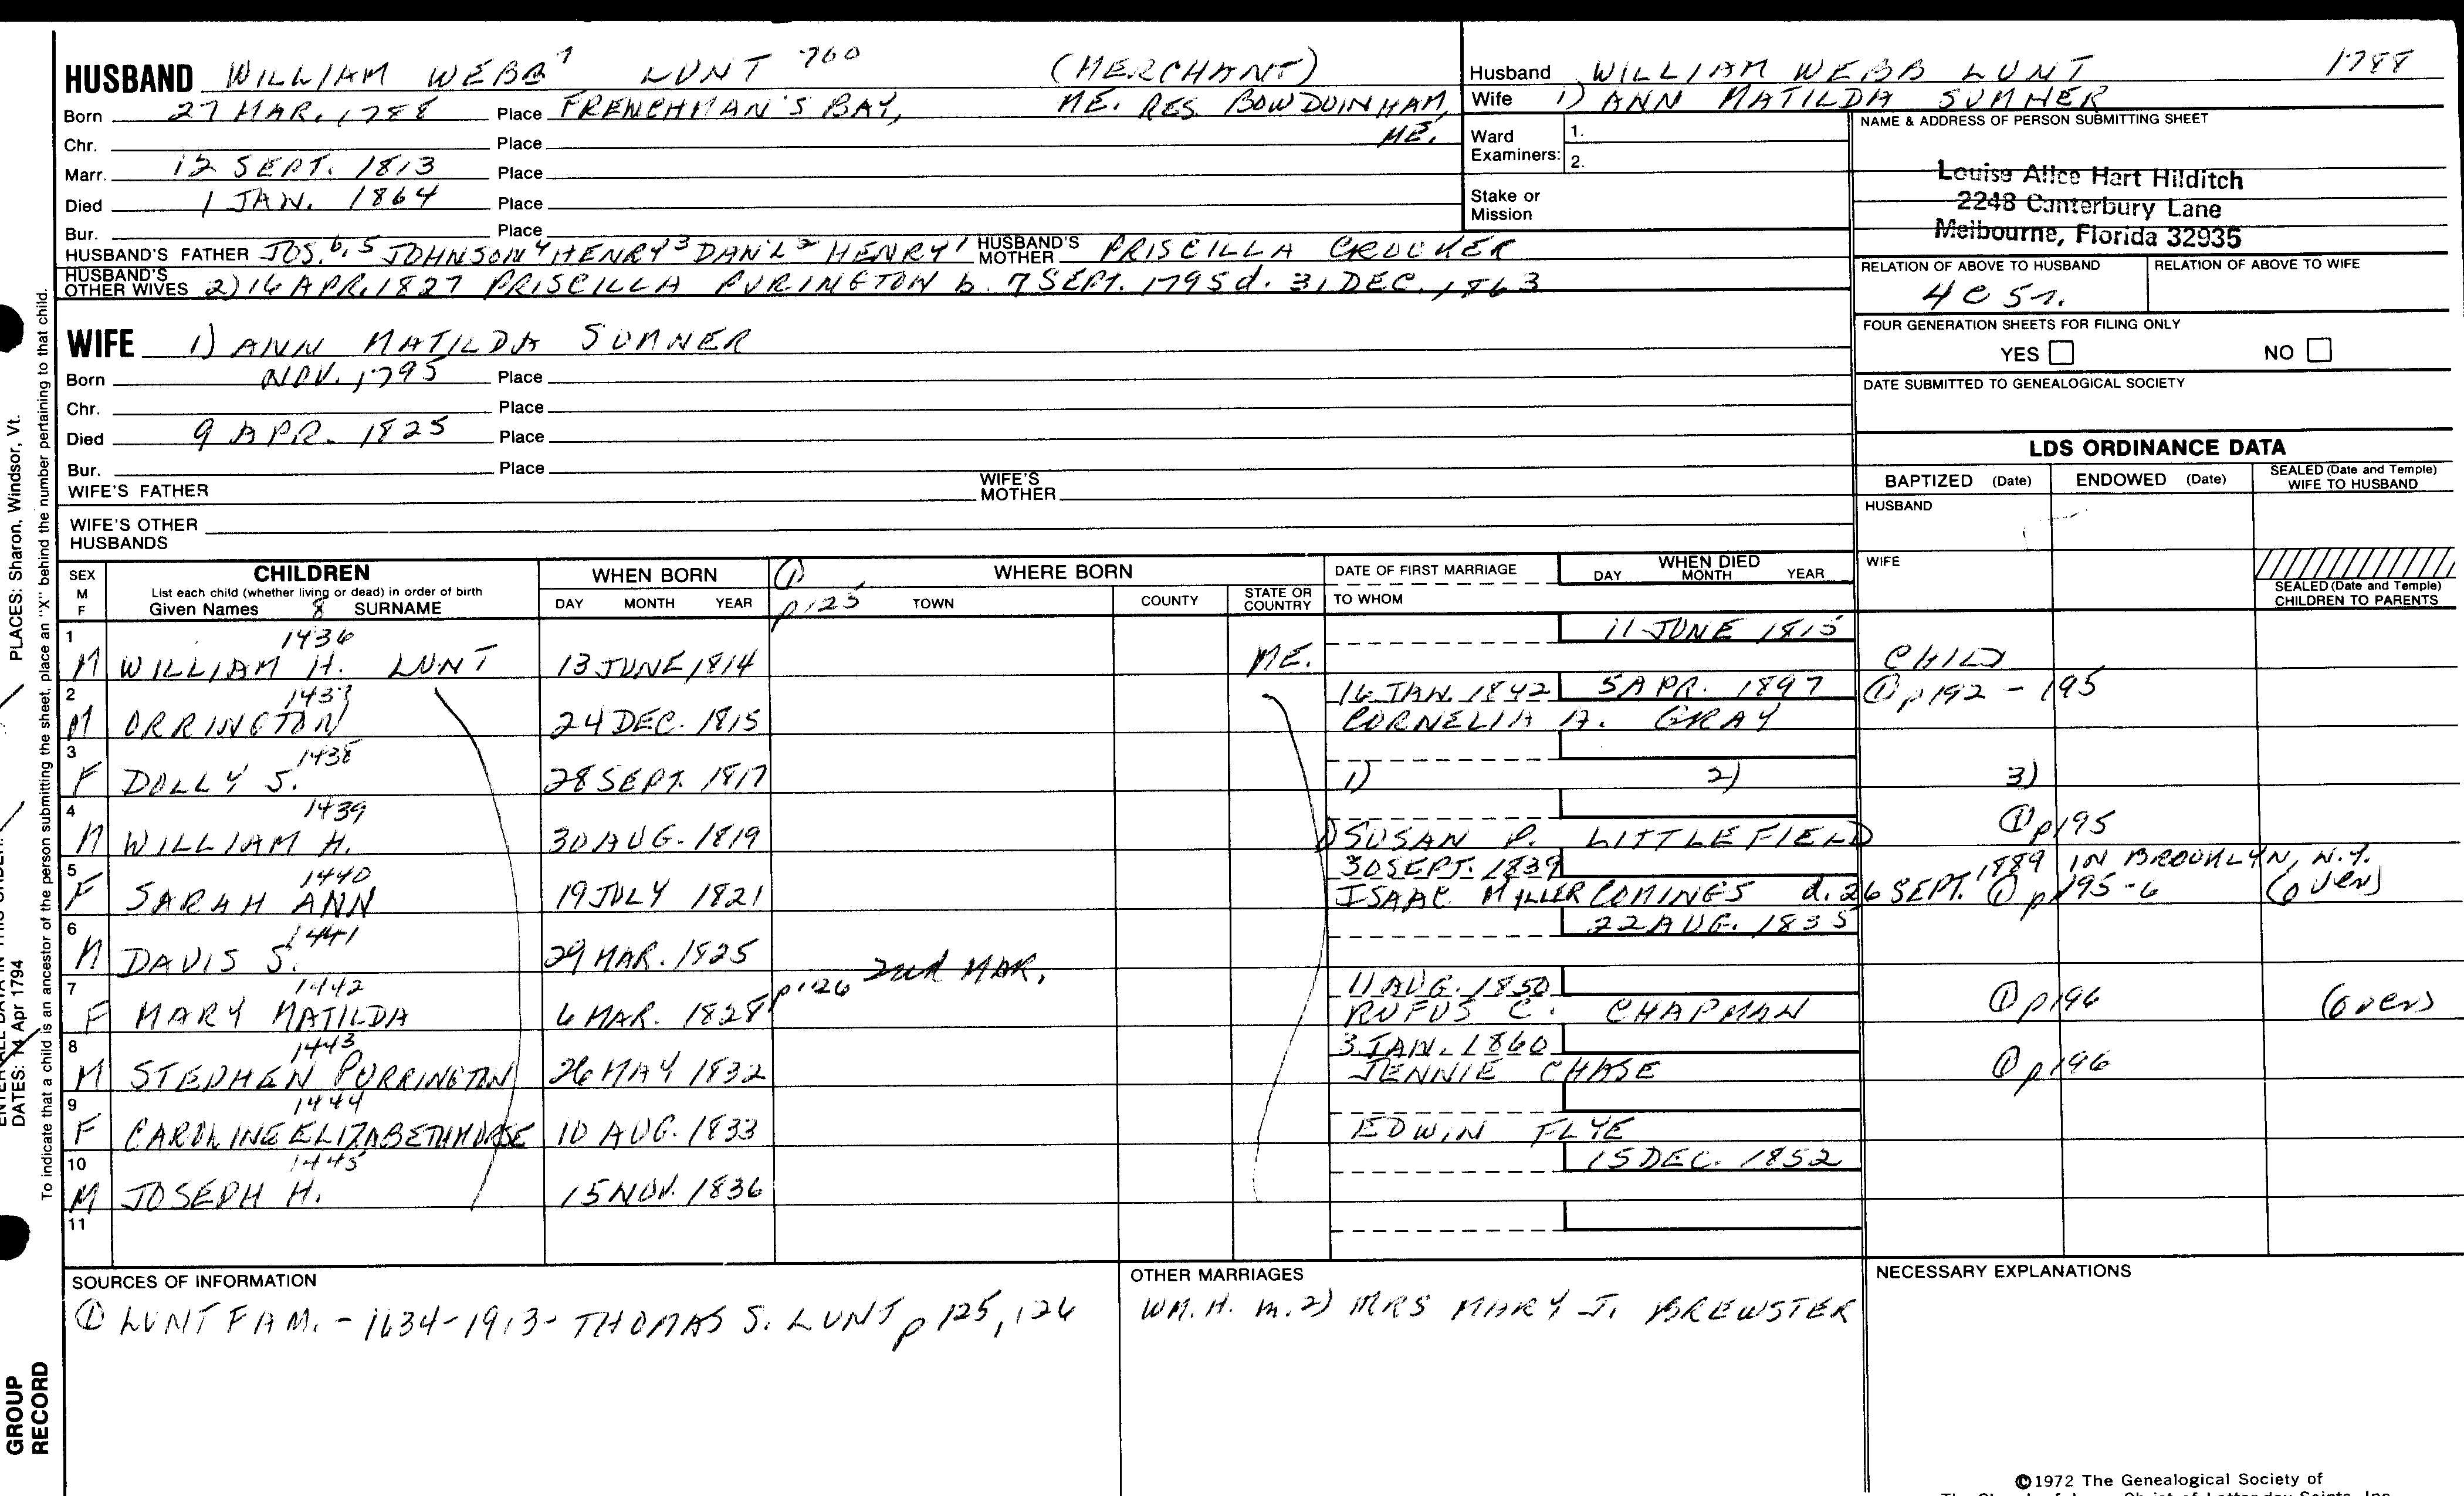 HUSBAND WILLIAM WEBB 7 LUNT 760 (MERCHANT)
Born 27 MAR. 1788 Place FRENCHMAN'S BAY, ME. RES. BOWDOINHAM, ME.
Chr. Place
Marr. 12 SEPT. 1813 Place
Died 1 JAN. 1864 Place
Bur. Place
HUSBAND'S FATHER JOS. 6, 5 JOHNSON 4 HENRY 3 DAN'L 2 HENRY 1 HUSBAND'S MOTHER PRISCILLA CROCKER
HUSBAND'S OTHER WIVES 2) 16 APR. 1827 PRISCILLA PURINGTON b. 7 SEPT. 1795 d. 31 DEC. 1863
WIFE 1) ANN MATILDA SUMNER
Born NOV. 1795 Place
Chr. Place
Died 9 APR. 1825 Place
Bur. Place
WIFE'S FATHER WIFE'S MOTHER
WIFE'S OTHER HUSBANDS
Husband WILLIAM WEBB LUNT 1788
Wife 1) ANN MATILDA SUMNER
Ward Examiners: 1.
2.
Stake or Mission
NAME & ADDRESS OF PERSON SUBMITTING SHEET
Louise Alice Hart Hilditch
2248 Canterbury Lane
Melbourne, Florida 32935
RELATION OF ABOVE TO HUSBAND RELATION OF ABOVE TO WIFE
4 C 5 r.
FOUR GENERATION SHEETS FOR FILING ONLY
YES NO
DATE SUBMITTED TO GENEALOGICAL SOCIETY
LDS ORDINANCE DATA
BAPTIZED (Date) ENDOWED (Date) SEALED (Date and Temple) WIFE TO HUSBAND
HUSBAND
WIFE
SEALED (Date and Temple) CHILDREN TO PARENTS
SEX M F CHILDREN List each child (whether living or dead) in order of birth Given Names 8 SURNAME
WHEN BORN DAY MONTH YEAR
① p 125 WHERE BORN TOWN COUNTY STATE OR COUNTRY
DATE OF FIRST MARRIAGE TO WHOM
WHEN DIED DAY MONTH YEAR
1 1436 11 JUNE 1815
M WILLIAM H. LUNT 13 JUNE 1814 ME. CHILD
2 1437 16 JAN. 1842 5 APR. 1897 ① p 192 - 195
M ORRINGTON 24 DEC. 1815 CORNELIA A. GRAY
3 1438
F DOLLY S. 28 SEPT. 1817 1) 2) 3)
4 1439
M WILLIAM H. 30 AUG. 1819 1) SUSAN P. LITTLEFIELD ① p 195
5 1440 30 SEPT. 1839 1889 IN BROOKLYN, N.Y.
F SARAH ANN 19 JULY 1821 ISAAC MILLER COMINGS d. 26 SEPT. ① p 195-6 (over)
6 1441 22 AUG. 1835
M DAVIS S. 29 MAR. 1825
7 1442 p 126 2nd MAR. 11 AUG. 1850
F MARY MATILDA 6 MAR. 1828 RUFUS C. CHAPMAN ① p 196 (over)
8 1443 3 JAN. 1860
M STEPHEN PURRINGTON 26 MAY 1832 JENNIE CHASE ① p 196
9 1444
F CAROLINE ELIZABETH MORSE 10 AUG. 1833 EDWIN FLYE
10 1445 15 DEC. 1852
M JOSEPH H. 15 NOV. 1836
11
SOURCES OF INFORMATION
① LUNT FAM. - 1634-1913 - THOMAS S. LUNT p 125, 126
OTHER MARRIAGES
WM. H. m. 2) MRS MARY J. BREWSTER
NECESSARY EXPLANATIONS
©1972 The Genealogical Society of
PLACES: Sharon, Windsor, Vt.
DATES: 14 Apr 1794
To indicate that a child is an ancestor of the person submitting the sheet, place an "X" behind the number pertaining to that child.
GROUP RECORD